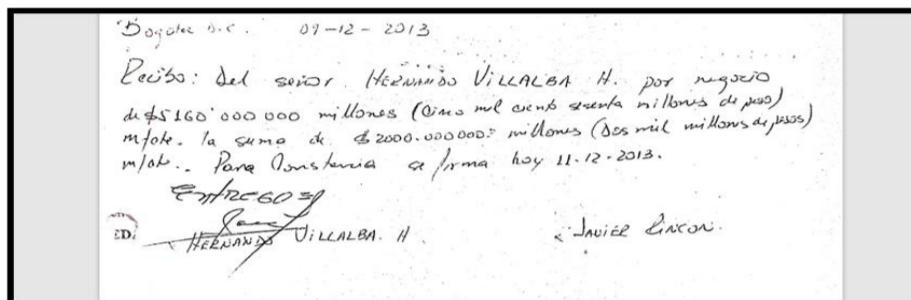 Bogota D.C. 09-12-2013
Recibo: Del señor HERNANDO VILLALBA H. por negocio
de $5160'000 000 millones (Cinco mil ciento sesenta millones de peso)
m/cte. la suma de $2000.000000= millones (Dos mil millones de pesos)
m/cte.. Para Constancia se firma hoy 11-12-2013.
ENTREGO
HERNANDO VILLALBA. H JAVIER RINCON.
ED.